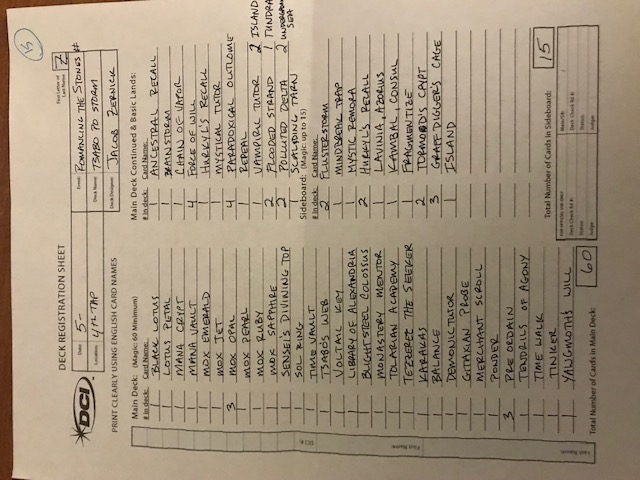 15
DECK REGISTRATION SHEET
First Letter of Last Name: Z
DCI
Date: 5-
Event: ROMANCING THE STONES #
Location: 4TH TAP
Deck Name: TSABO PO STORM
Deck Designer: JACOB ZERNICK
PRINT CLEARLY USING ENGLISH CARD NAMES
Main Deck: (Magic: 60 Minimum)
# in deck: Card Name:
1 BLACK LOTUS
1 LOTUS PETAL
1 MANA CRYPT
1 MANA VAULT
1 MOX EMERALD
1 MOX JET
3 MOX OPAL
1 MOX PEARL
1 MOX RUBY
1 MOX SAPPHIRE
1 SENSEI'S DIVINING TOP
1 SOL RING
1 TIME VAULT
1 TSABO'S WEB
1 VOLTAIC KEY
1 LIBRARY OF ALEXANDRIA
1 BLIGHTSTEEL COLOSSUS
1 MONASTERY MENTOR
1 TOLARIAN ACADEMY
1 TEZZERET THE SEEKER
1 KARAKAS
1 BALANCE
1 DEMONIC TUTOR
1 GITAXIAN PROBE
1 MERCHANT SCROLL
1 PONDER
3 PREORDAIN
1 TENDRILS OF AGONY
1 TIME WALK
1 TINKER
1 YAWGMOTH'S WILL
Total Number of Cards in Main Deck: 60
Main Deck Continued & Basic Lands:
# in deck: Card Name:
1 ANCESTRAL RECALL
1 BRAINSTORM
1 CHAIN OF VAPOR
4 FORCE OF WILL
1 HURKYL'S RECALL
1 MYSTICAL TUTOR
4 PARADOXICAL OUTCOME
1 REPEAL
1 VAMPIRIC TUTOR 2 ISLAND
2 FLOODED STRAND 1 TUNDRA
2 POLLUTED DELTA 2 UNDERGROUND SEA
1 SCALDING TARN
Sideboard: (Magic: up to 15)
# in deck: Card Name:
2 FLUSTERSTORM
1 MINDBREAK TRAP
1 MYSTIC REMORA
2 HURKYL'S RECALL
1 LAVINIA, AZORIUS
1 KAMBAL, CONSUL
1 FRAGMENTIZE
2 TORMOD'S CRYPT
3 GRAFFDIGGER'S CAGE
1 ISLAND
Total Number of Cards in Sideboard: 15
FOR OFFICIAL USE ONLY
Main/SB: /
Deck Check Rd #: Deck Check Rd #:
Status: Status:
Judge: Judge:
DCI #:
First Name:
Last Name: